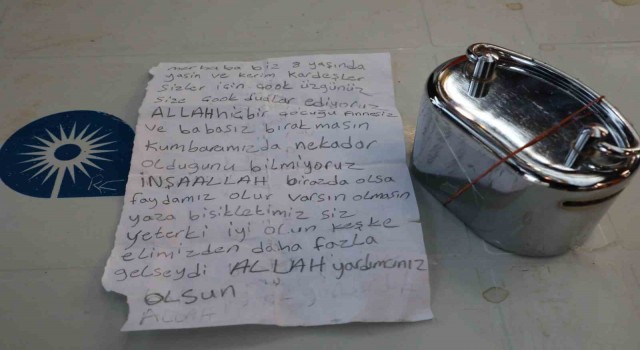 merhaba biz 8 yaşında
yasin ve kerim kardeşler
sizler için çook üzgünüz
size çook dualar ediyoruz
ALLAH hiçbir çocuğu annesiz
ve babasız bırakmasın
kumbaramızda nekadar
olduğunu bilmiyoruz
İNŞAALLAH birazda olsa
faydamız olur varsın olmasın
yaza bisikletimiz siz
yeterki iyi olun keşke
elimizden daha fazla
gelseydi ALLAH yardımcınız
OLSUN